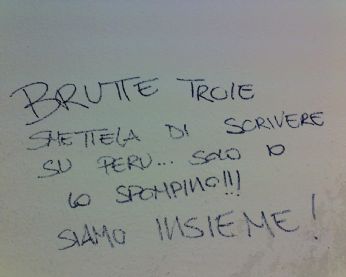 BRUTTE TROIE
SMETTELA DI SCRIVERE
SU PERU... SOLO IO
LO SPOMPINO!!!
SIAMO INSIEME!